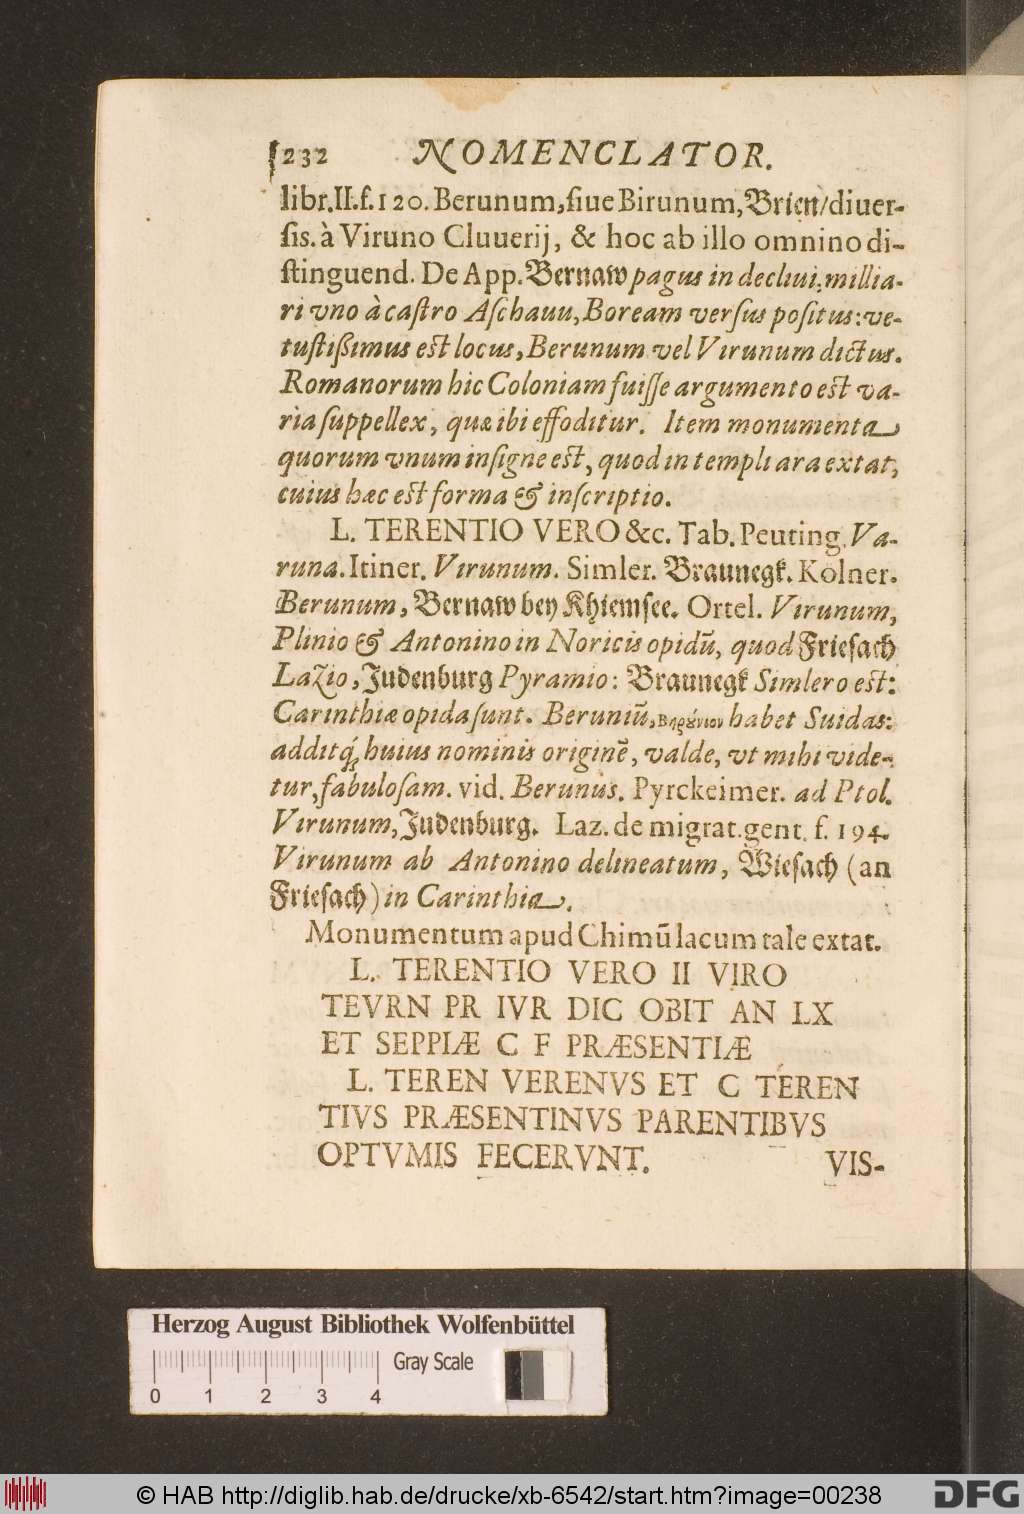 232 NOMENCLATOR.
libr. II. f. 120. Berunum, ſiue Birunum, Brien/ diuer-
ſis. à Viruno Cluuerij, & hoc ab illo omnino di-
ſtinguend. De App. Bernaw pagus in decliui, millia-
ri vno à caſtro Aſchauu, Boream verſus poſitus: ve-
tuſtißimus eſt locus, Berunum vel Virunum dictus.
Romanorum hic Coloniam fuiſſe argumento eſt va-
ria ſuppellex, quæ ibi effoditur. Item monumenta
quorum vnum inſigne eſt, quod in templi ara extat,
cuius hæc eſt forma & inſcriptio.
L. TERENTIO VERO &c. Tab. Peuting. Va-
runa. Itiner. Virunum. Simler. Braunegk. Kolner.
Berunum, Bernaw bey Khiemſee. Ortel. Virunum,
Plinio & Antonino in Noricis opidũ, quod Frieſach
Lazio, Judenburg Pyramio: Braunegk Simlero eſt:
Carinthiæ opida ſunt. Beruniũ, Βηρούνιον habet Suidas:
additq́ꝫ huius nominis originẽ, valde, vt mihi vide-
tur, fabuloſam. vid. Berunus. Pyrckeimer. ad Ptol.
Virunum, Judenburg. Laz. de migrat. gent. f. 194.
Virunum ab Antonino delineatum, Wieſach (an
Frieſach) in Carinthia.
Monumentum apud Chimũ lacum tale extat.
L. TERENTIO VERO II VIRO
TEVRN PR IVR DIC OBIT AN LX
ET SEPPIÆ C F PRÆSENTIÆ
L. TEREN VERENVS ET C TEREN
TIVS PRÆSENTINVS PARENTIBVS
OPTVMIS FECERVNT.
VIS-
Herzog August Bibliothek Wolfenbüttel
Gray Scale
0 1 2 3 4
© HAB http://diglib.hab.de/drucke/xb-6542/start.htm?image=00238
DFG